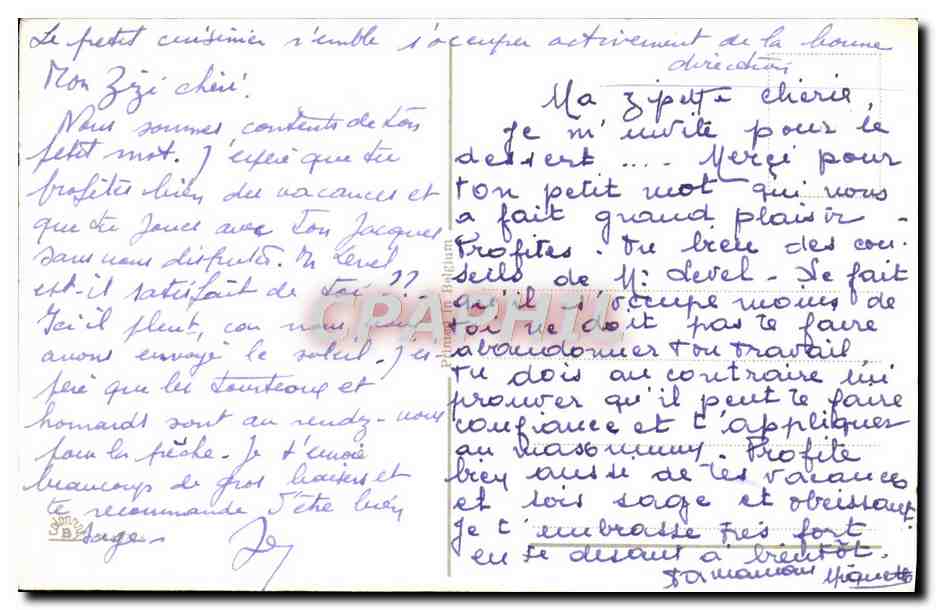 Le petit cuisinier s'emble s'occuper activement de la bonne
direction
Mon Zizi chéri.
Nous sommes contents de ton
petit mot. J'espère que tu
profites bien du vacances et
que tu joues avec ton Jacques
sans vous disputer. Mr Level
est-il satisfait de toi ??
Ici il pleut, car nous vous
avons envoyé le soleil. J'es-
père que les tourteaux et
homards sont au rendez-vous
pour la pêche. Je t'envoie
beaucoup de gros baisers et
te recommande d'être bien
sage.
Ma Zipette chérie,
Je m'invite pour le
dessert .... Merci pour
ton petit mot qui nous
a fait grand plaisir -
Profites. tu bien des con-
seils de Mr Level - Le fait
qu'il s'occupe moins de
toi ne doit pas te faire
abandonner ton travail
tu dois au contraire lui
prouver qu'il peut te faire
confiance et t'appliquer
au maximum. Profite
bien aussi de tes vacances
et sois sage et obeissant
Je t'embrasse très fort
en te disant à bientôt.
ta maman Miquette
Printed in Belgium
CPAPHIL